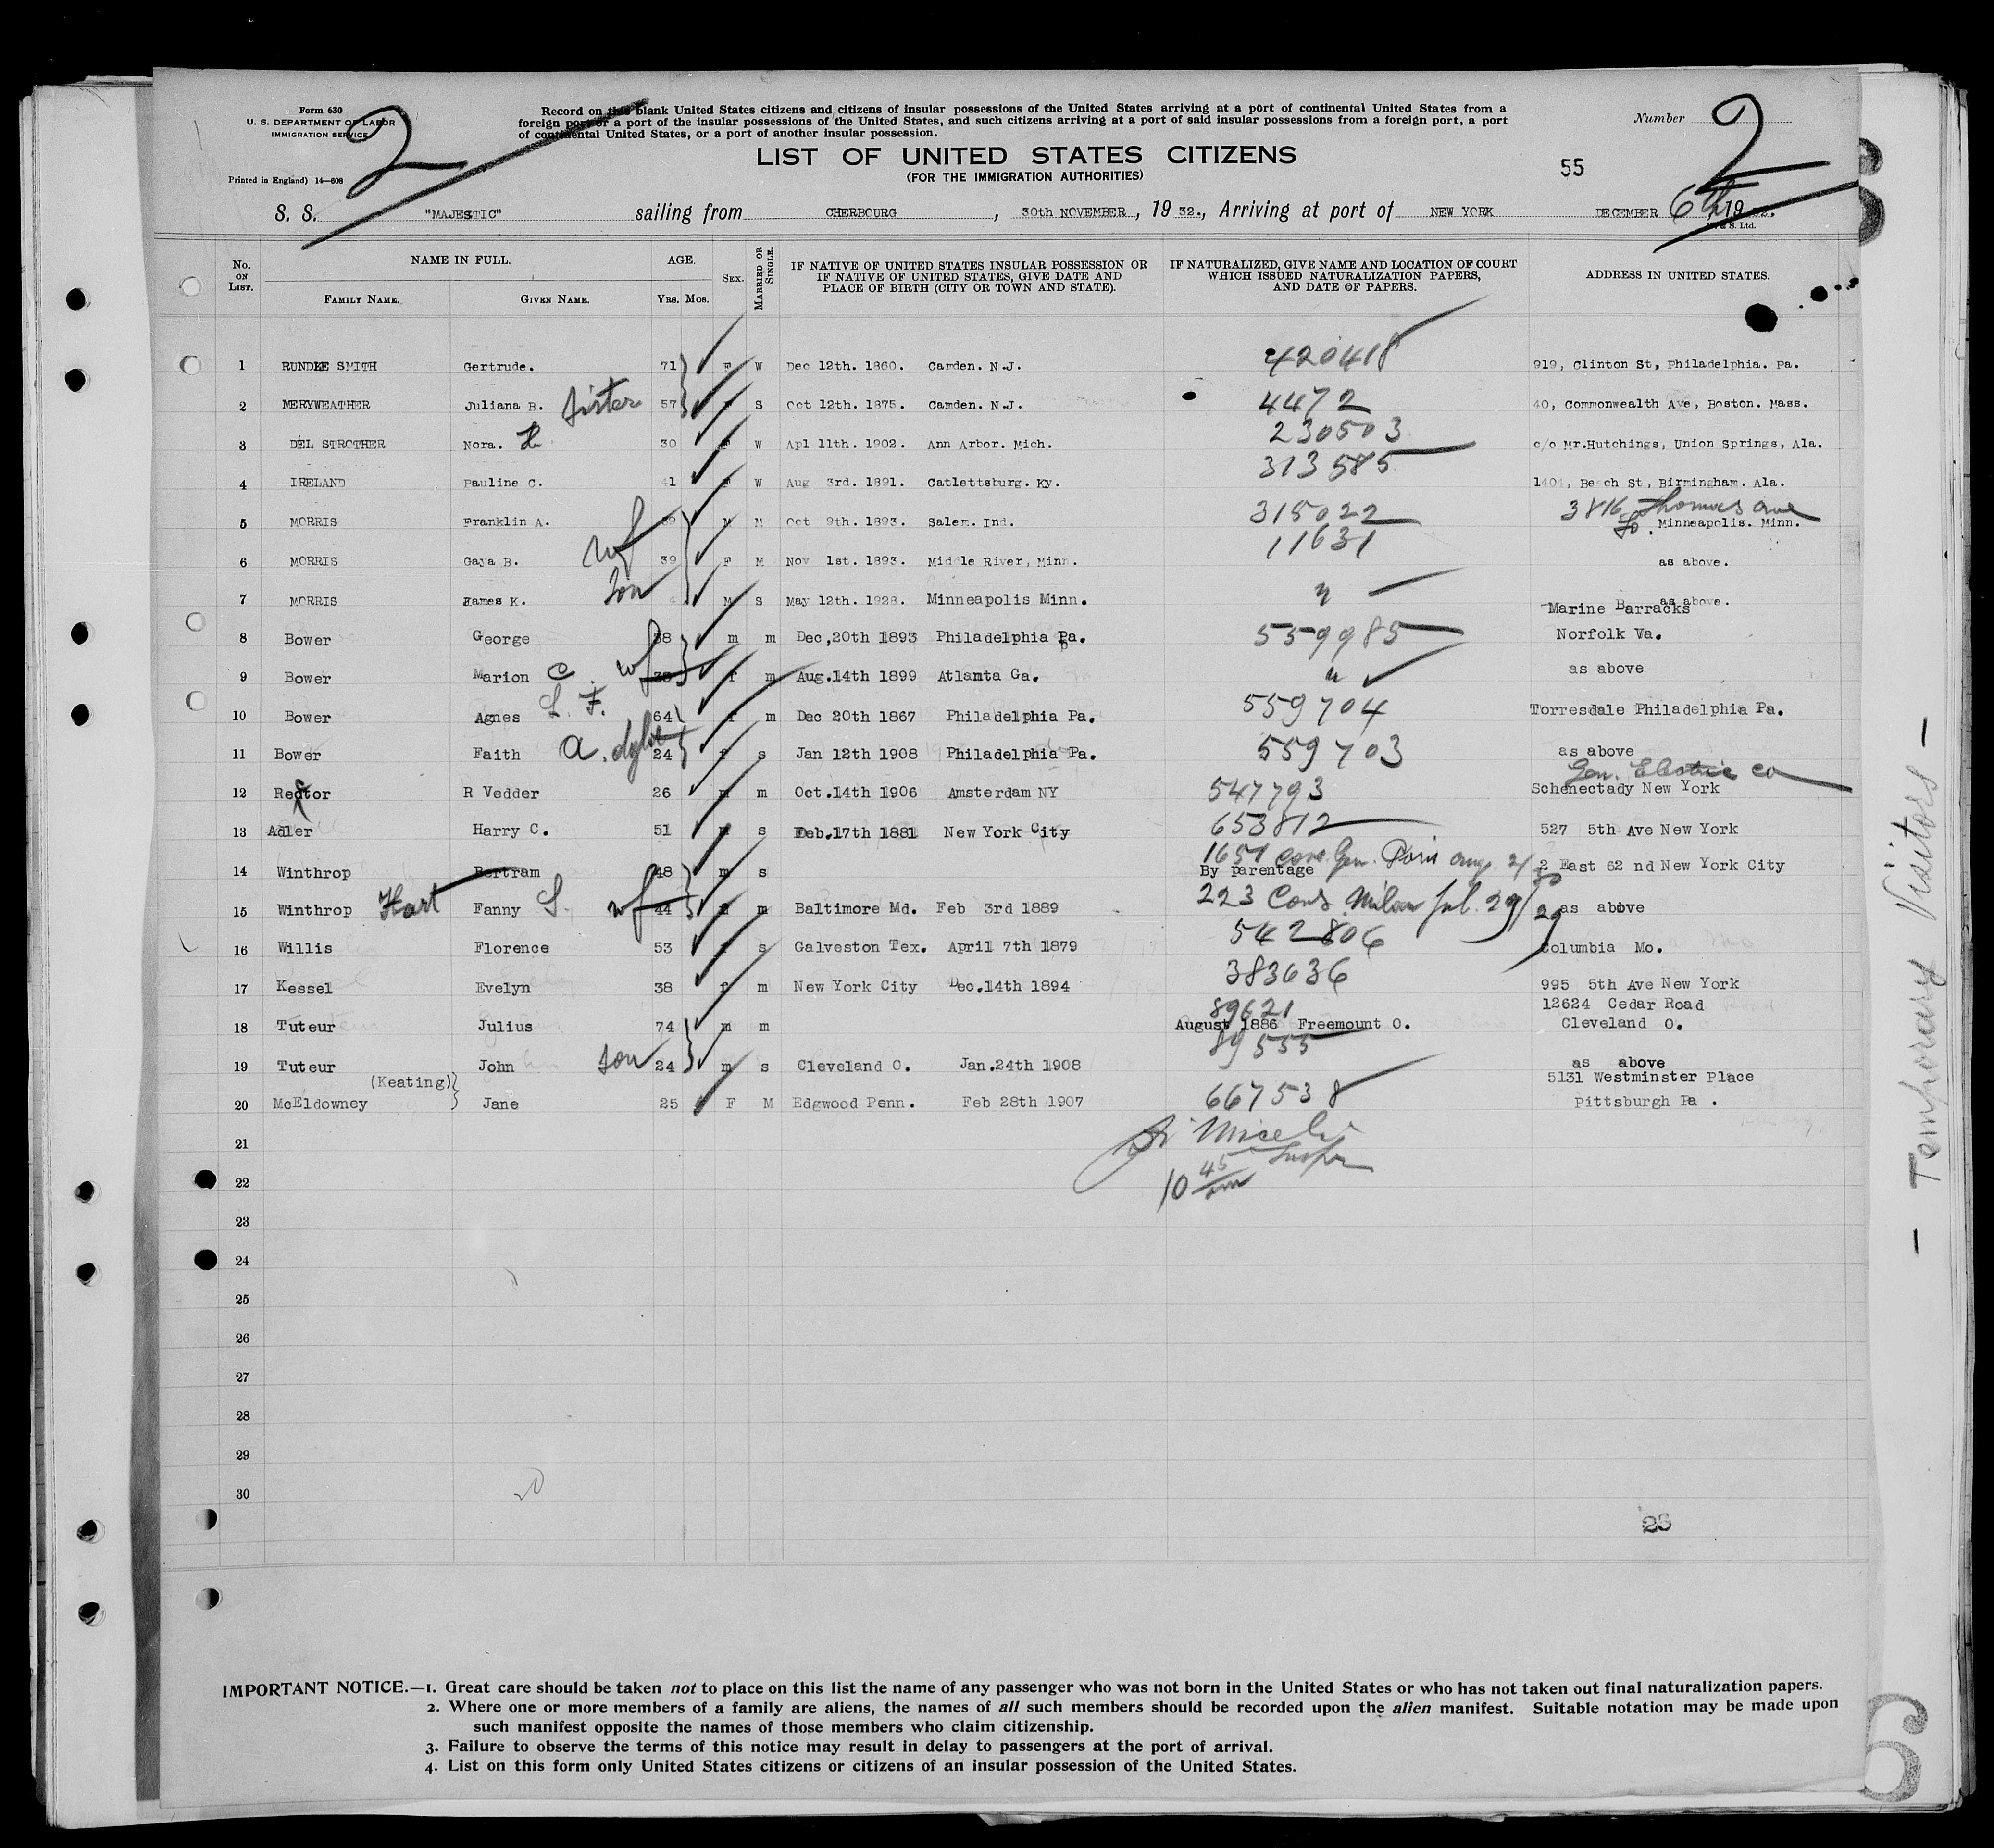 Form 630
U. S. DEPARTMENT OF LABOR
IMMIGRATION SERVICE
Printed in England) 14—608
2
Record on this blank United States citizens and citizens of insular possessions of the United States arriving at a port of continental United States from a
foreign port or a port of the insular possessions of the United States, and such citizens arriving at a port of said insular possessions from a foreign port, a port
of continental United States, or a port of another insular possession.
Number 2
LIST OF UNITED STATES CITIZENS
(FOR THE IMMIGRATION AUTHORITIES)
55
S. S. "MAJESTIC" sailing from CHERBOURG, 30th NOVEMBER, 1932., Arriving at port of NEW YORK DECEMBER 6th, 19
& S. Ltd.
No. ON LIST. NAME IN FULL. AGE. SEX. MARRIED OR SINGLE. IF NATIVE OF UNITED STATES INSULAR POSSESSION OR IF NATIVE OF UNITED STATES, GIVE DATE AND PLACE OF BIRTH (CITY OR TOWN AND STATE). IF NATURALIZED, GIVE NAME AND LOCATION OF COURT WHICH ISSUED NATURALIZATION PAPERS, AND DATE OF PAPERS. ADDRESS IN UNITED STATES.
FAMILY NAME. GIVEN NAME. Yrs. Mos.
1 RUNDLE SMITH Gertrude. 71 F W Dec 12th. 1860. Camden. N.J. 420418 919, Clinton St, Philadelphia. Pa.
2 MERYWEATHER Juliana B. sister 57 F S Oct 12th. 1875. Camden. N.J. 4472 40, Commonwealth Ave, Boston. Mass.
3 DEL STROTHER Nora. H. 30 F W Apl 11th. 1902. Ann Arbor. Mich. 230503 c/o Mr.Hutchings, Union Springs, Ala.
4 IRELAND Pauline C. 41 F W Aug 3rd. 1891. Catlettsburg. Ky. 313585 1404, Beech St, Birmingham. Ala.
5 MORRIS Franklin A. 39 M M Oct 9th. 1893. Salem. Ind. 315022 3816 Thomas ave So. Minneapolis. Minn.
6 MORRIS Gaya B. wf 39 F M Nov 1st. 1893. Middle River, Minn. 11631 as above.
7 MORRIS James K. son 4 M S May 12th. 1928. Minneapolis Minn. " as above.
8 Bower George 38 m m Dec,20th 1893 Philadelphia Pa. 559985 Marine Barracks Norfolk Va.
9 Bower Marion C. wf 33 f m Aug.14th 1899 Atlanta Ga. " as above
10 Bower Agnes L. F. 64 f m Dec 20th 1867 Philadelphia Pa. 559704 Torresdale Philadelphia Pa.
11 Bower Faith A. dght 24 f s Jan 12th 1908 Philadelphia Pa. 559703 as above
12 Rector R Vedder 26 m m Oct.14th 1906 Amsterdam NY 547793 Gen. Electric Co Schenectady New York
13 Adler Harry C. 51 m s Feb.17th 1881 New York City 653812 527 5th Ave New York
14 Winthrop Bertram 48 m s 1651 Cons. Gen. Paris aug. 21/30 By parentage 2 East 62 nd New York City
15 Winthrop Hart Fanny S. wf 44 f m Baltimore Md. Feb 3rd 1889 223 Cons. Milan Jul. 29/29 as above
16 Willis Florence 53 f s Galveston Tex. April 7th 1879 542806 Columbia Mo.
17 Kessel Evelyn 38 f m New York City Dec.14th 1894 383636 995 5th Ave New York
18 Tuteur Julius 74 m m 89621 August 1886 Freemount O. 12624 Cedar Road Cleveland O.
19 Tuteur John son 24 m s Cleveland O. Jan.24th 1908 89555 as above
20 McEldowney (Keating) Jane 25 F M Edgwood Penn. Feb 28th 1907 667538 5131 Westminster Place Pittsburgh Pa .
21
Inspr
22
10 45 am
23
24
25
26
27
28
29
30
IMPORTANT NOTICE.—1. Great care should be taken not to place on this list the name of any passenger who was not born in the United States or who has not taken out final naturalization papers.
2. Where one or more members of a family are aliens, the names of all such members should be recorded upon the alien manifest. Suitable notation may be made upon
such manifest opposite the names of those members who claim citizenship.
3. Failure to observe the terms of this notice may result in delay to passengers at the port of arrival.
4. List on this form only United States citizens or citizens of an insular possession of the United States.
— Temporary Visitors —
6